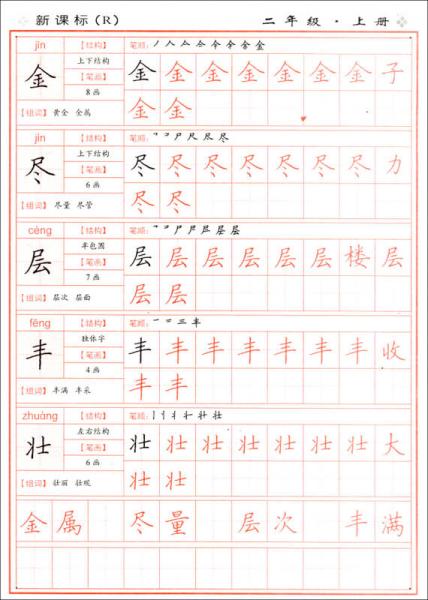 新课标(R) 二年级·上册
jīn 【结构】 笔顺:
金 上下结构 金 金 金 金 金 金 金 子
【笔画】
8画 金 金
【组词】 黄金 金属
jìn 【结构】 笔顺:
尽 上下结构 尽 尽 尽 尽 尽 尽 尽 力
【笔画】
6画 尽 尽
【组词】 尽量 尽管
céng 【结构】 笔顺:
层 半包围 层 层 层 层 层 层 楼 层
【笔画】
7画 层 层
【组词】 层次 层面
fēng 【结构】 笔顺: 一 二 三 丰
丰 独体字 丰 丰 丰 丰 丰 丰 丰 收
【笔画】
4画 丰 丰
【组词】 丰满 丰采
zhuàng 【结构】 笔顺:
壮 左右结构 壮 壮 壮 壮 壮 壮 壮 大
【笔画】
6画 壮 壮
【组词】 壮丽
金 属 尽 量 层 次 丰 满